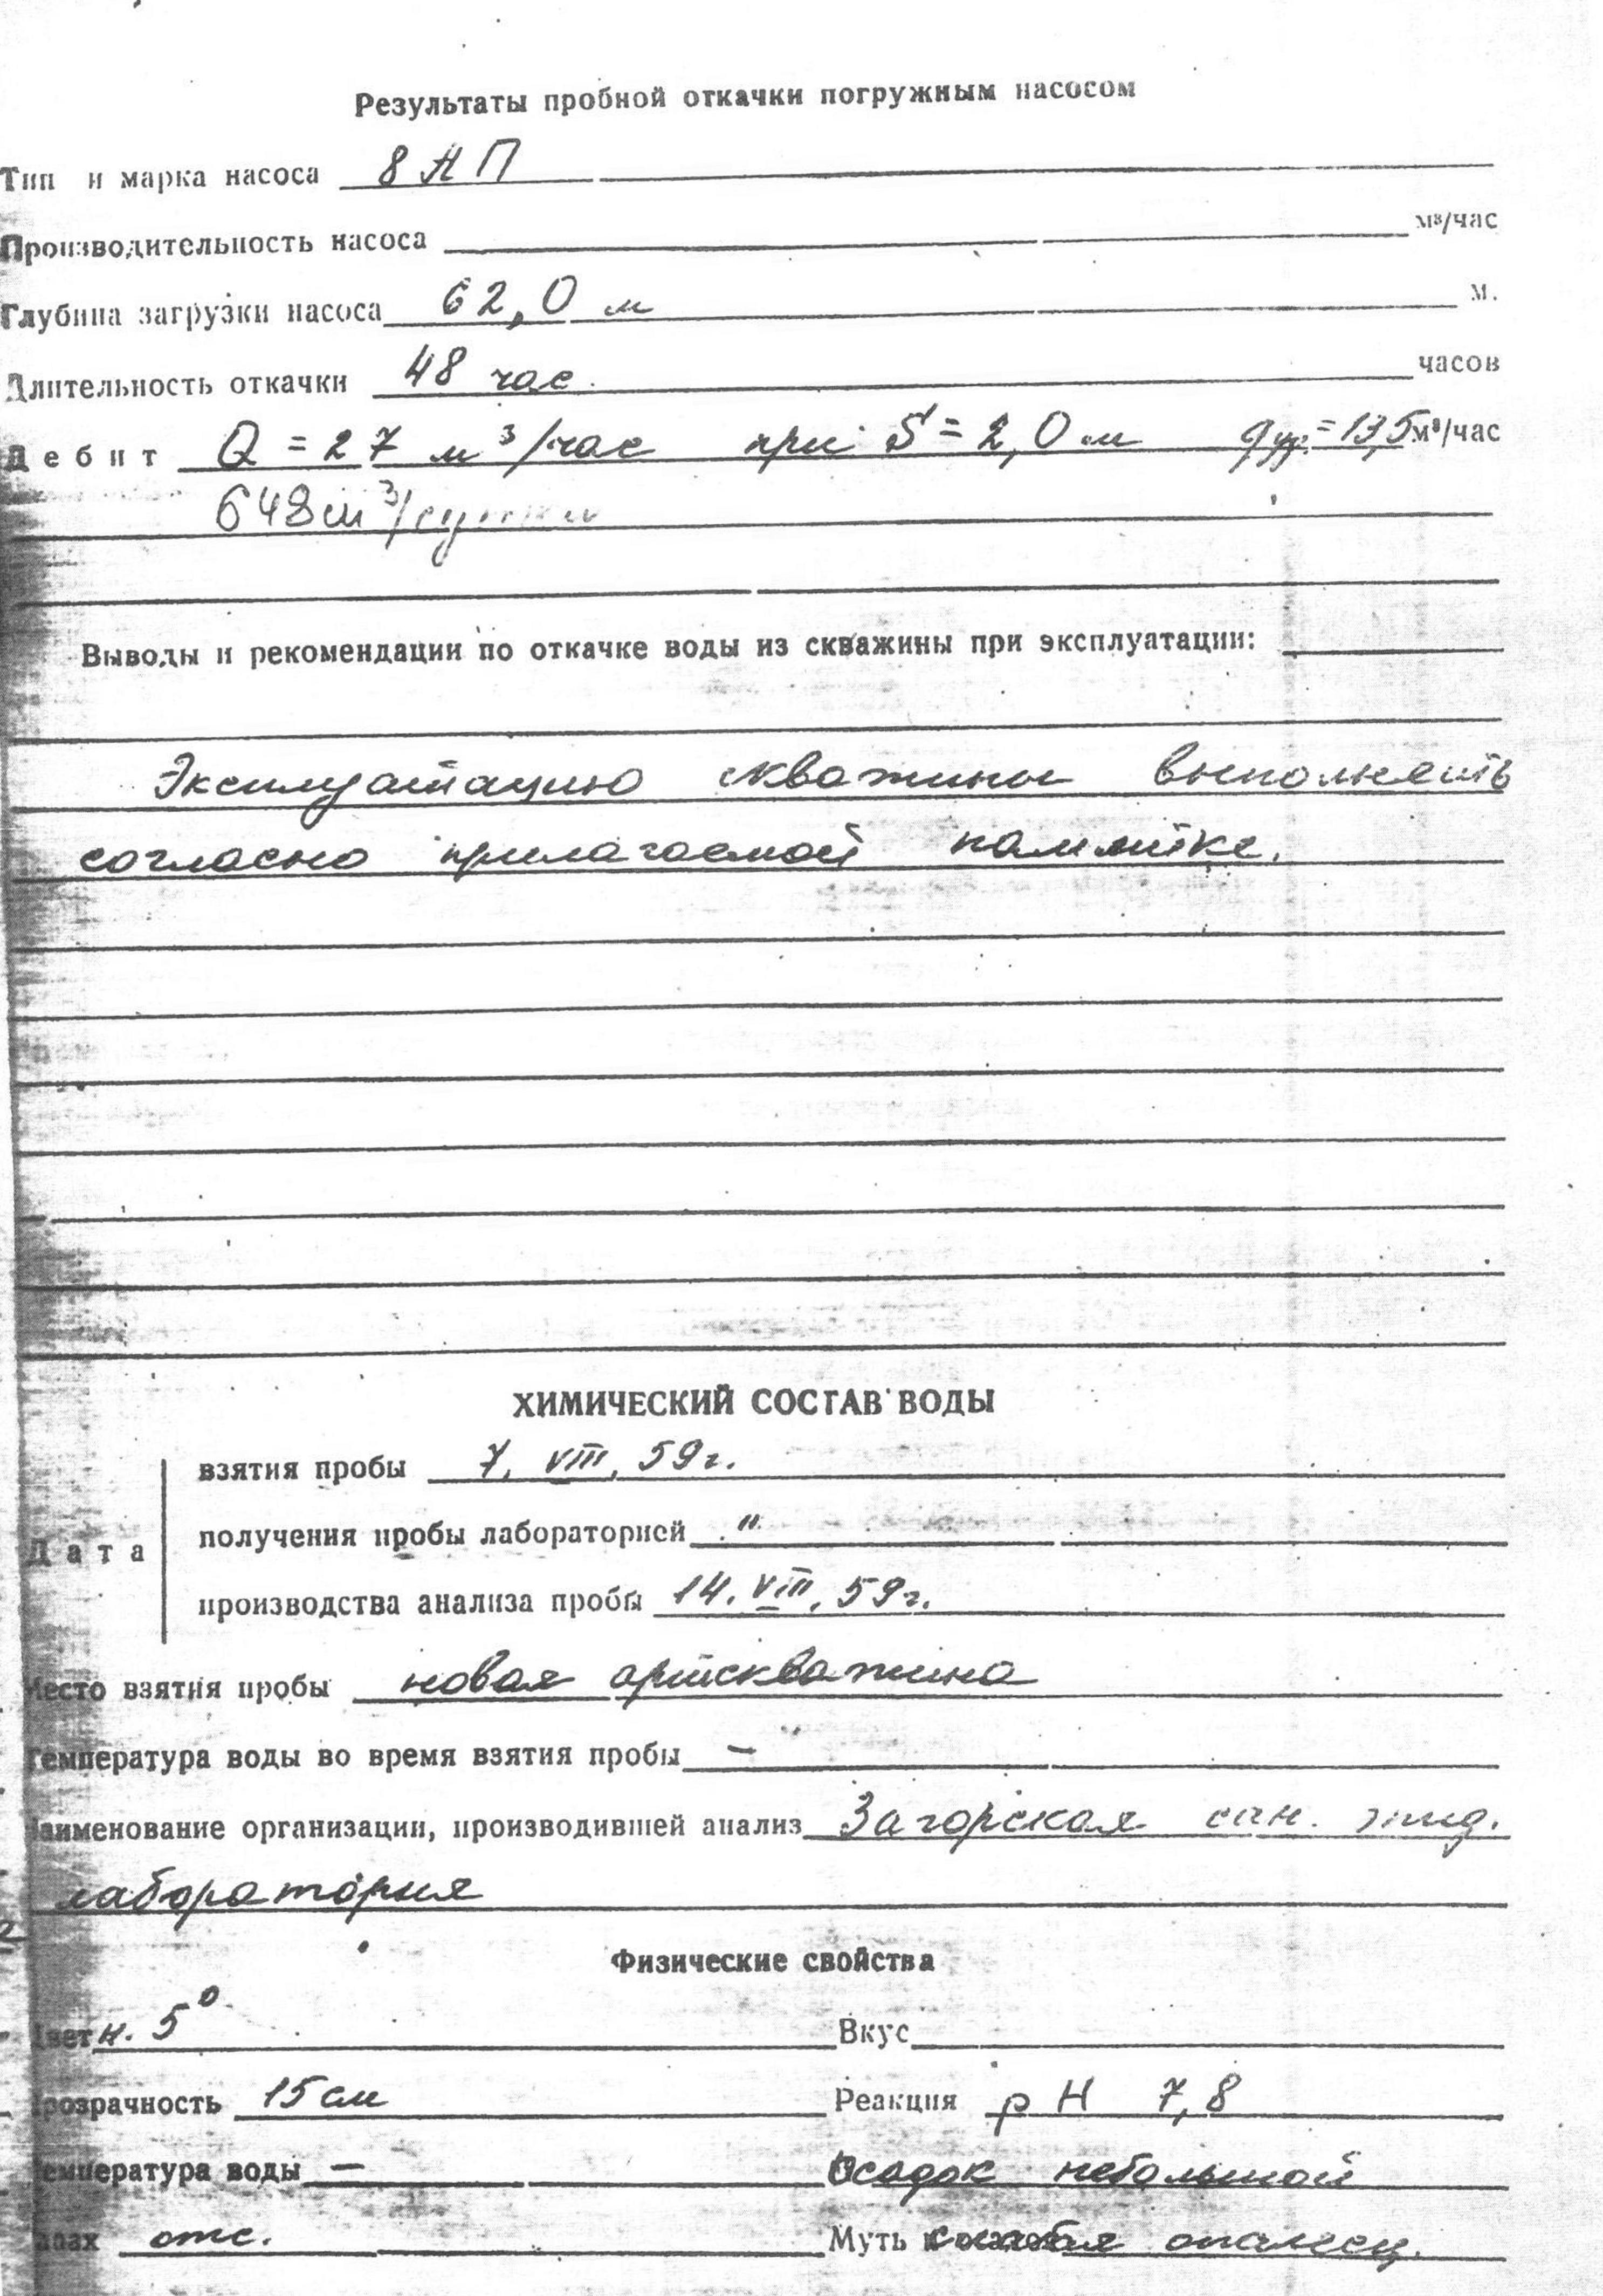 Результаты пробной откачки погружным насосом
Тип и марка насоса 8 АП
Производительность насоса м³/час
Глубина загрузки насоса 62,0 м м.
Длительность откачки 48 час. часов
Дебит Q = 27 м³/час при S = 2,0 м q уд. = 13,5 м³/час
648 м³/сутки
Выводы и рекомендации по откачке воды из скважины при эксплуатации:
Эксплуатацию скважины выполнять
согласно прилагаемой памятке.
ХИМИЧЕСКИЙ СОСТАВ ВОДЫ
взятия пробы 7. VIII. 59 г.
Дата получения пробы лабораторией "
производства анализа пробы 14. VIII. 59 г.
Место взятия пробы новая артскважина
Температура воды во время взятия пробы —
Наименование организации, производившей анализ Загорская сан. эпид.
лаборатория
Физические свойства
Цвет н. 5° Вкус
Прозрачность 15 см Реакция pH 7,8
Температура воды — Осадок небольшой
Запах отс. Муть слабая опалесц.